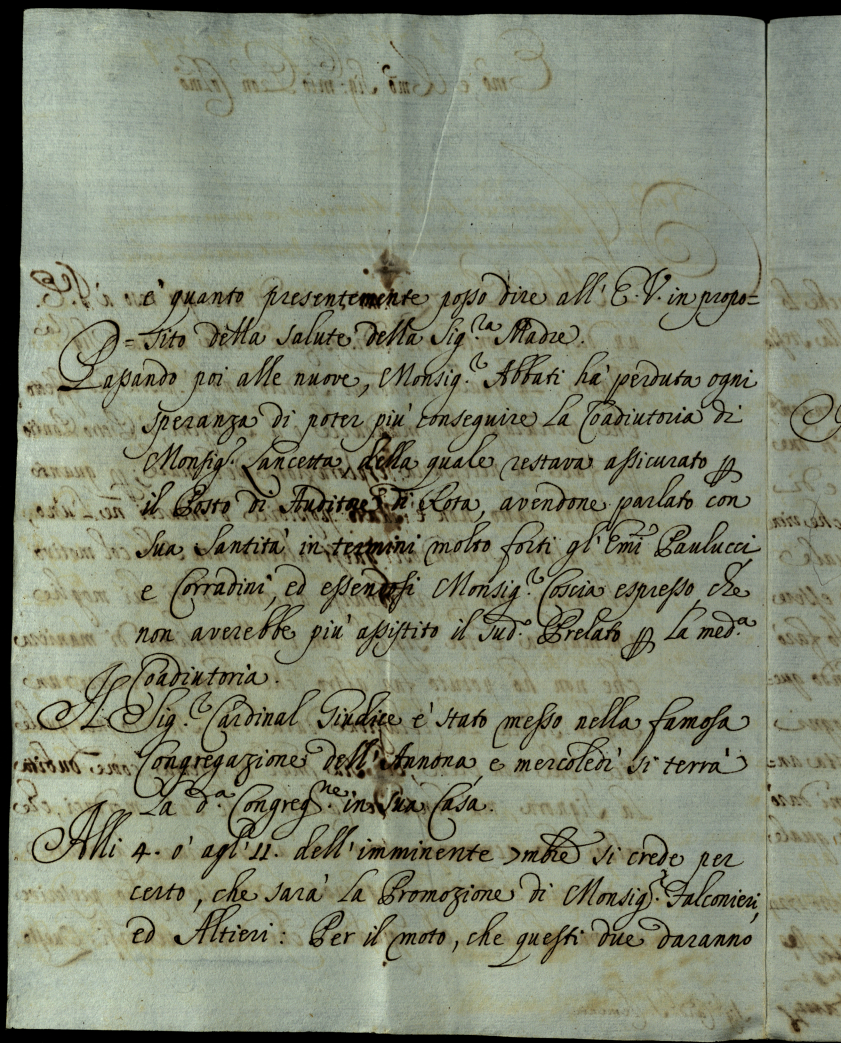 e' quanto presentemente posso dire all' E. V. in propo=
=sito della salute della Sig.ra Madre.
Passando poi alle nuove, Monsig.r Abbati ha' perduta ogni
speranza di poter più conseguire la Coadiutoria di
Monsig.r Lancetta, della quale restava assicurato p
il Posto di Auditore di Rota, avendone parlato con
Sua Santità in termini molto forti gl' Emi Paulucci
e Corradini, ed essendosi Monsig.r Coscia espresso, che
non averebbe più assistito il sud.o Prelato p la med.a
Coadiutoria.
Il Sig.r Cardinal Giudice è stato messo nella famosa
Congregazione dell' Annona, e mercoledì si terrà
la d.a Congreg.ne in sua Casa.
Alli 4. o' agl' 11. dell' imminente Xmbre si crede per
certo, che sarà la Promozione di Monsig.r Falconieri,
ed Altieri: Per il moto, che questi due daranno